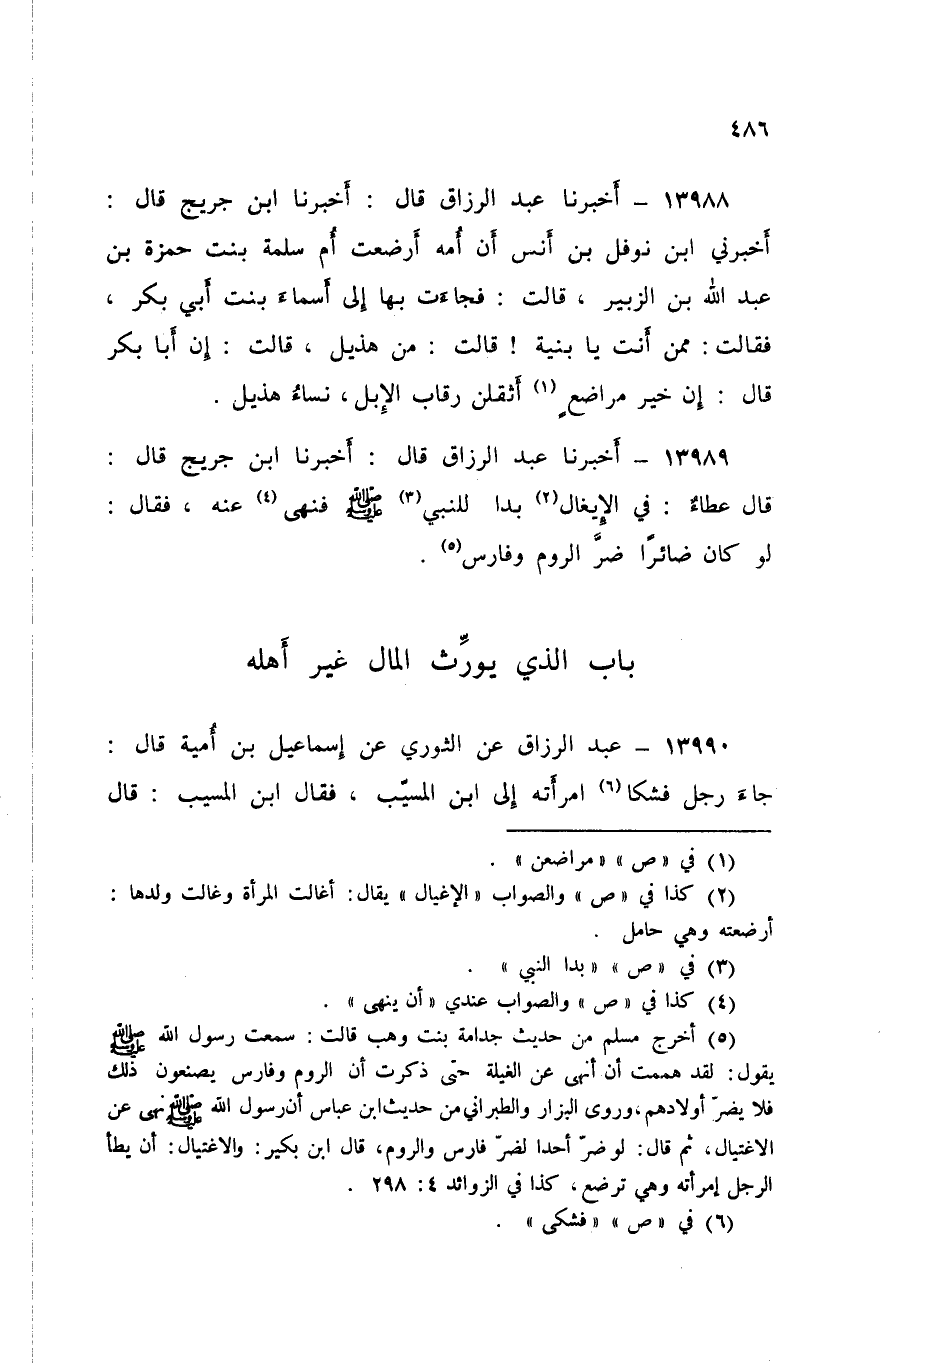 ٤٨٦
١٣٩٨٨ – أَخبرنا عبد الرزاق قال : أَخبرنا ابن جريج قال :
أَخبرني ابن نوفل بن أَنس أَن أُمه أَرضعت أُم سلمة بنت حمزة بن
عبد الله بن الزبير ، قالت : فجاءَت بها إِلى أَسماءَ بنت أَبي بكر ،
فقالت : ممن أَنت يا بنية ! قالت : من هذيل ، قالت : إِن أَبا بكر
قال : إِن خير مراضعٍ (١) أَثقلن رقاب الإِبل ، نساءُ هذيل .
١٣٩٨٩ – أَخبرنا عبد الرزاق قال : أَخبرنا ابن جريج قال :
قال عطاءٌ : في الإِيغال (٢) بدا للنبي (٣) ﷺ فنهى (٤) عنه ، فقال :
لو كان ضائرًا ضرَّ الروم وفارس (٥) .
باب الذي يورِّث المال غير أَهله
١٣٩٩٠ – عبد الرزاق عن الثوري عن إِسماعيل بن أُمية قال :
جاءَ رجل فشكا (٦) امرأَته إِلى ابن المسيّب ، فقال ابن المسيب : قال
(١) في « ص » « مراضعن » .
(٢) كذا في « ص » والصواب « الإغيال » يقال : أغالت المرأة وغالت ولدها :
أرضعته وهي حامل .
(٣) في « ص » « بدا النبي » .
(٤) كذا في « ص » والصواب عندي « أن ينهى » .
(٥) أخرج مسلم من حديث جدامة بنت وهب قالت : سمعت رسول الله ﷺ
يقول : لقد هممت أن أنهى عن الغيلة حتى ذكرت أن الروم وفارس يصنعون ذلك
فلا يضرّ أولادهم ، وروى البزار والطبراني من حديث ابن عباس أن رسول الله ﷺ نهى عن
الاغتيال ، ثم قال : لو ضرّ أحدا لضرّ فارس والروم ، قال ابن بكير : والاغتيال : أن يطأ
الرجل إمرأته وهي ترضع ، كذا في الزوائد ٤ : ٢٩٨ .
(٦) في « ص » « فشكى » .